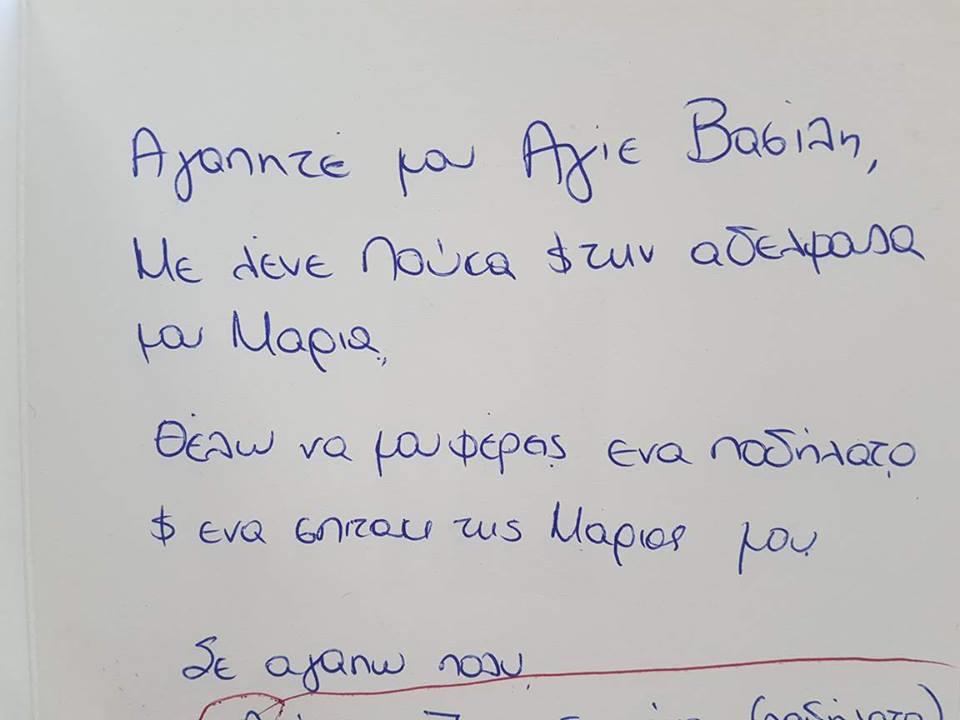 Αγαπητέ μου Αγιε Βασίλη,
Με λένε Λούκα $ την αδελφαλα
μου Μαρια,
Θέλω να μου φέρεις ενα ποδήλατο
$ ενα σπιτακι της Μαριας μου
Σε αγαπω πολυ
(ποδήλατο)